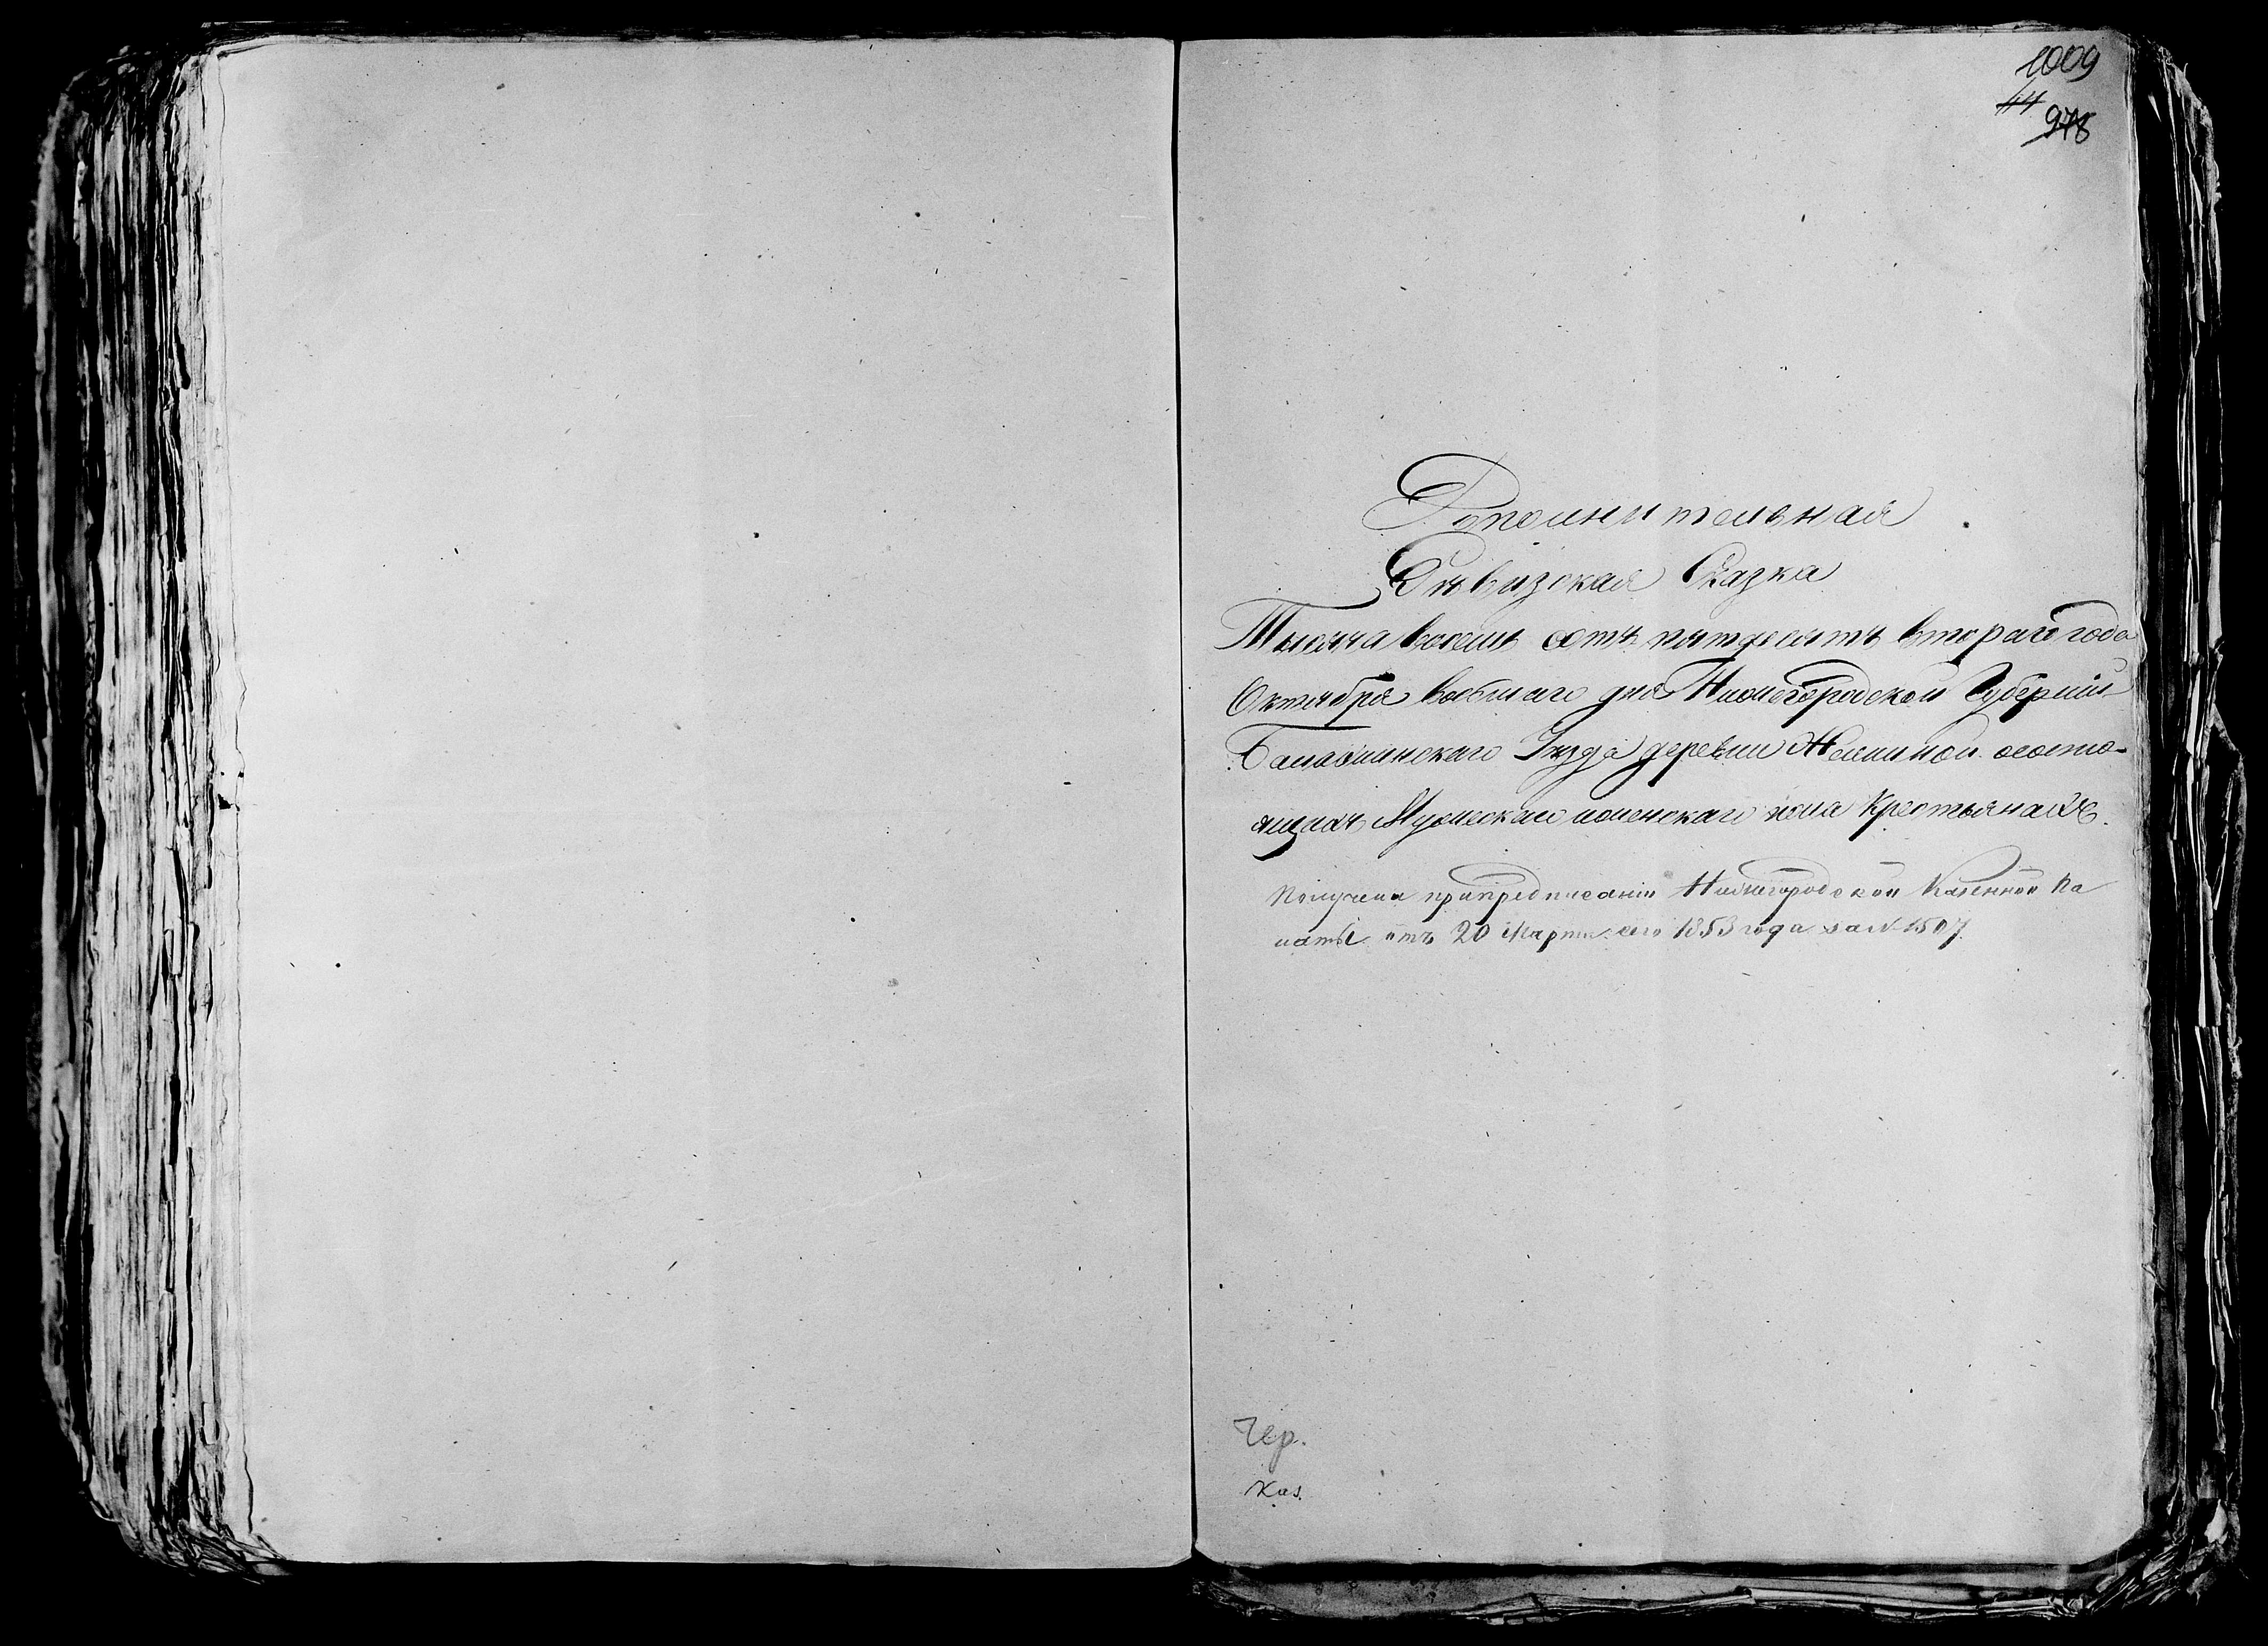 1009
44
978
Дополнительная
Ревизская Сказка
Тысяча восемь сотъ пятдесятъ втораго года
Октября восмаго дня Нижегородской Губерніи
Балахнинскаго Уезда деревни осостоящихъ Мужеска и женскаго пола Крестьянахъ.
Получена припредписаніи Нижегородской Казенной Па
латы отъ 20 Марта сего 1853 года за № 1507.
Чер.
Каз.